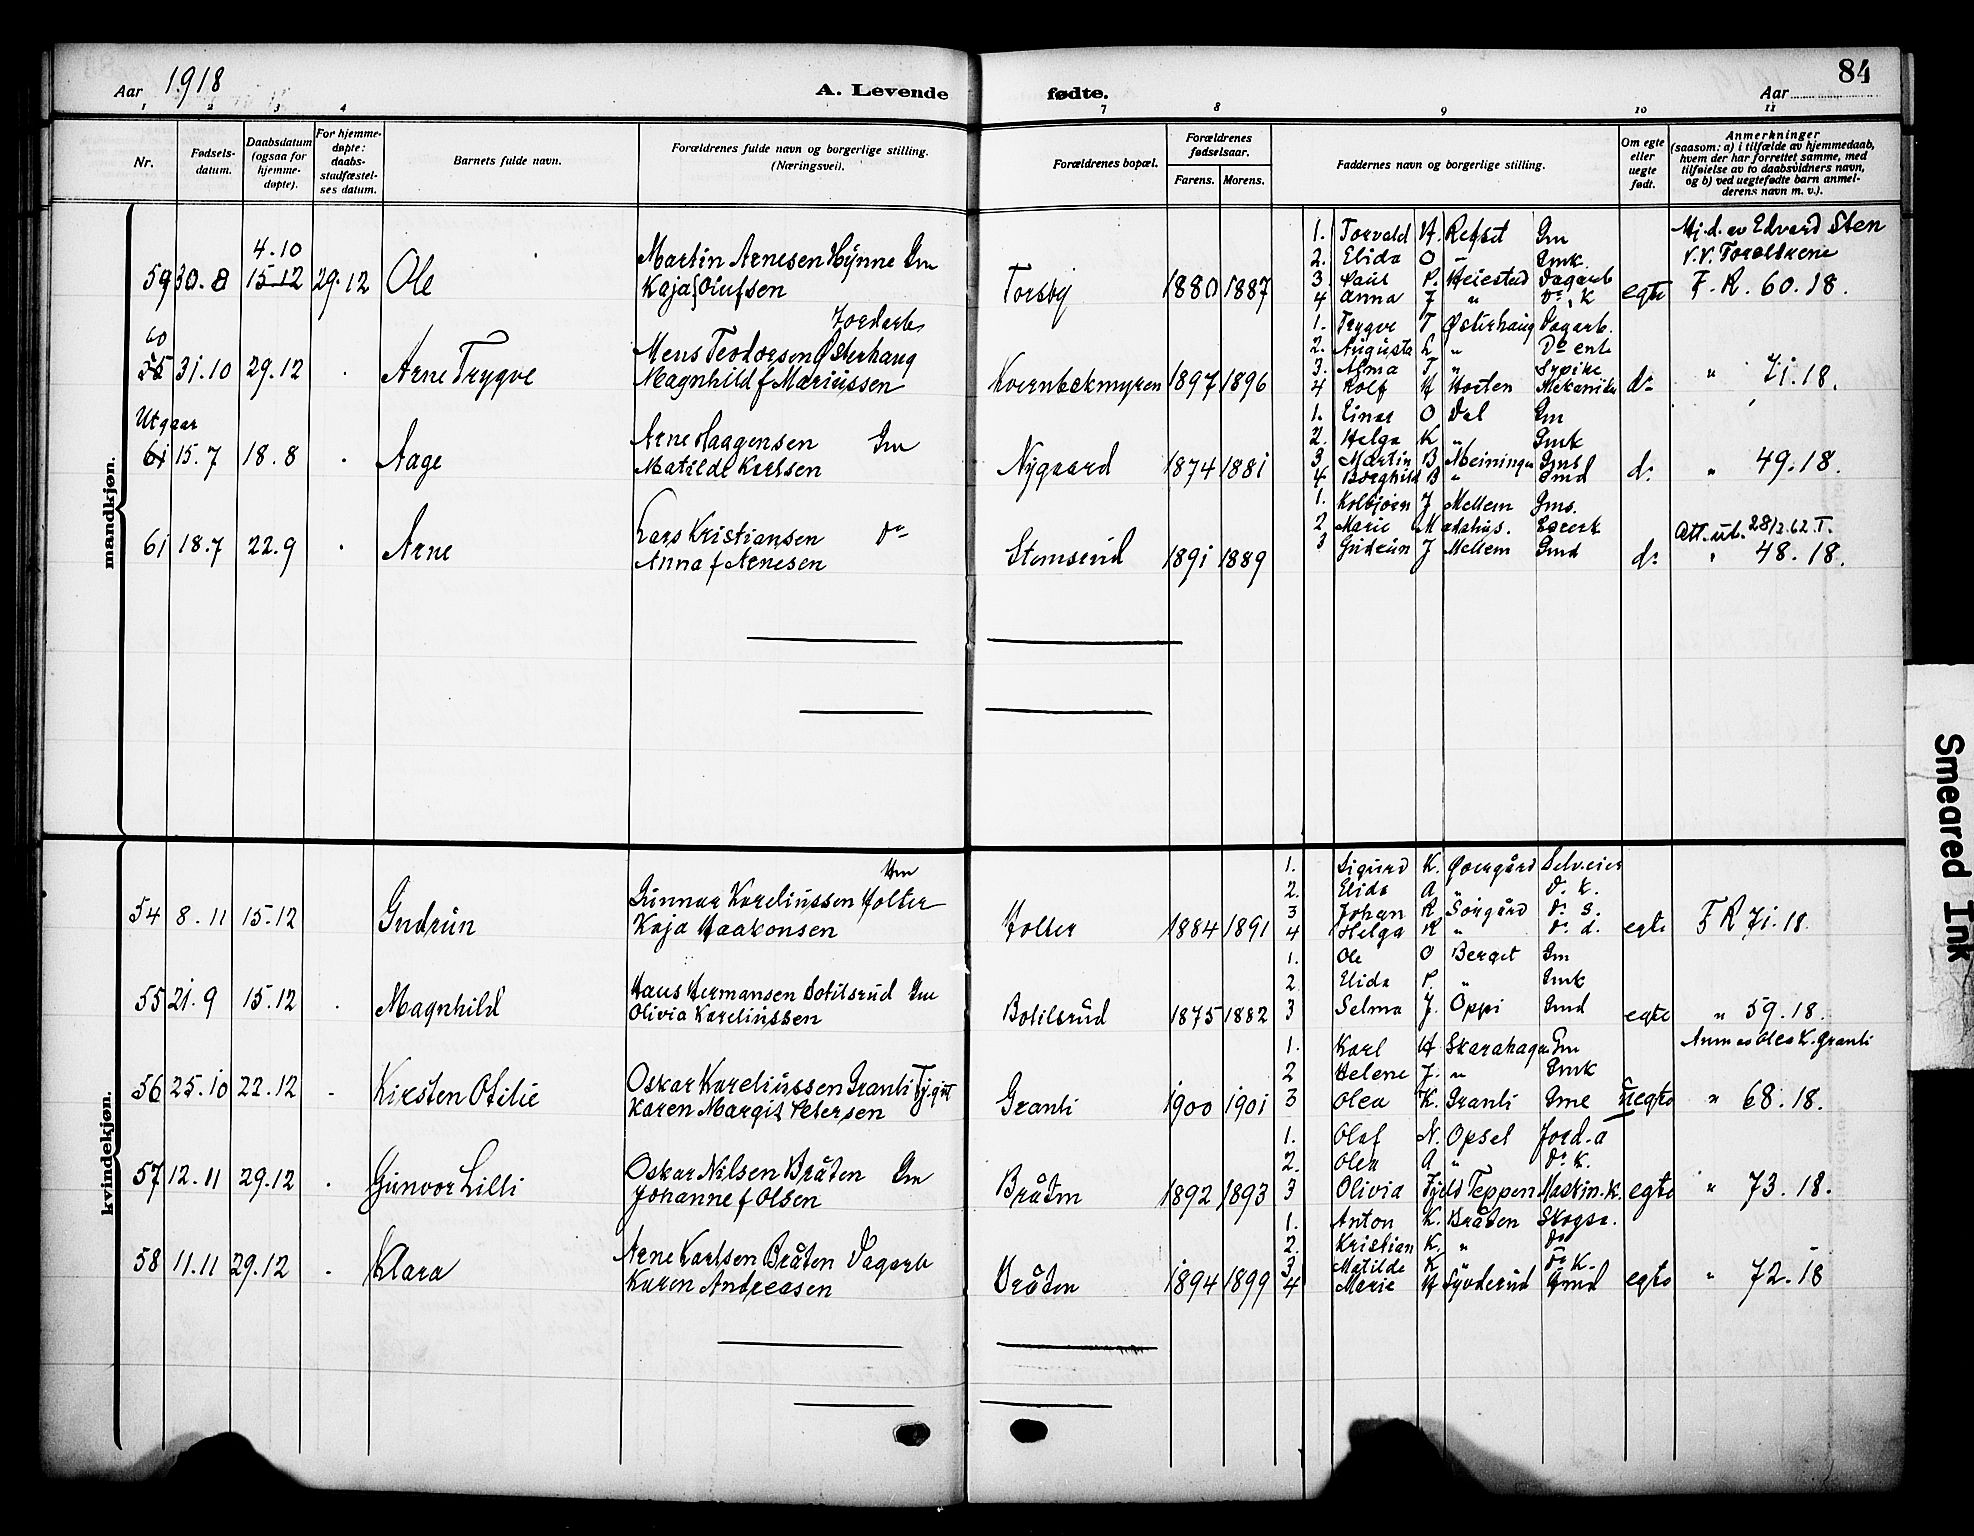 84
Aar 1918
A. Levende fødte.
Aar
1 2 3 4 7 8 9 10 11
Nr.
Fødsels-
datum.
Daabsdatum
(ogsaa for
hjemme-
døpte).
For hjemme-
døpte:
daabs-
stadfæstel-
ses datum.
Barnets fulde navn.
Forældrenes fulde navn og borgerlige stilling.
(Næringsveil).
Forældrenes bopæl.
Forældrenes
fødselsaar.
Farens. Morens.
Faddernes navn og borgerlige stilling.
Om egte
eller
uegte
født.
Anmerkninger
(saasom: a) i tilfælde av hjemmedaab,
hvem der har forrettet samme, med
tilføielse av to daabsvidners navn,
og b) ved uegtefødte barn anmel-
derens navn m. v.).
mandkjøn.
4.10
59 30.8 15.12 29.12 Ole
Martin Arnesen Hynne Gm
Kaja f Olufsen
Torsby 1880 1887
1. Torvald H. Refset Gm
2. Elida O " Gmk.
3 Paul P. Heiestad Dagarb
4 Anna J " Do. K
egte
Hj.d. av Edvard Sten
V.V. Foreldrene
F. R. 60.18.
60
55 31.10 29.12 . Arne Trygve
Jordarb.
Mens Teodorsen Østerhaug
Magnhild f Mariussen
Kvernbekmyren 1897 1896
1. Trygve T Østerhaug Dagarb.
2. Augusta L " Do enke
3. Alma T " Srpike
4 Rolf H Horten Mekaniker
do
" 71.18.
Utgaar
61 15.7 18.8 . Aage
Arne Haagensen Gm
Matilde Karlsen
Nygaard 1874 1881
1. Einar O Dal Gm
2. Helga K " Gmk
3. Martin B Meininge Gms
4. Borghild B " Gmd
do
" 49.18.
61 18.7 22.9 . Arne
Lars Kristiansen Do
Anna f Arnesen
Stomserud 1891 1889
1. Kolbjørn J Mellem Gms.
2. Marie M
3 Gudrun J Mellem Gmd
do
Att. ut. 28/2.62 T.
" 48.18.
kvindekjøn.
54 8.11 15.12 Gudrun
Gm
Gunnar Kareliussen Holter
Kaja Haakonsen
Holter 1884 1891
1. Sigurd K. Øvergård Selveier
2. Elida A " D. k.
3 Johan R Sørgård Do. S.
4 Helga R " Do. d.
egte
F R 71.18.
55 21.9 15.12 . Magnhild
Hans Hermansen Botilsrud Gm
Olivia Kareliussen
Botilsrud 1875 1882
1. Ole O Berget Gm
2. Elida P. " Gmk
3 Selma J. Oppi Gmd
egte
" 59.18.
56 25.10 22.12 . Kirsten Otilie
Oskar Kareliussen Granli Tj.gut
Karen Margit Petersen
Granli 1900 1901
1. Karl H Skarahagen Gm
2 Helene J. " Gmk
3 Olea K. Granli Gme
Uegte
Anm av Olea K. Granli
" 68.18.
57 12.11 29.12 . Gunvor Lilli
Oskar Nilsen Bråten Gm
Johanne f Olsen
Bråten 1892 1893
1. Olaf N. Opsal Jord.a
2. Olea A " Do. K.
3 Olivia Fjeld Teppen Maskin.k.
egte
" 73.18.
58 11.11 29.12 . Klara
Arne Karlsen Bråten Dagarb
Karen Andreasen
Bråten 1894 1899
1. Anton K. Bråten Skogsa.
2. Kristian K. " Do
3. Matilde K " Do K.
4 Marie H Syvderud Gmd
egte
" 72.18
Smeared Ink